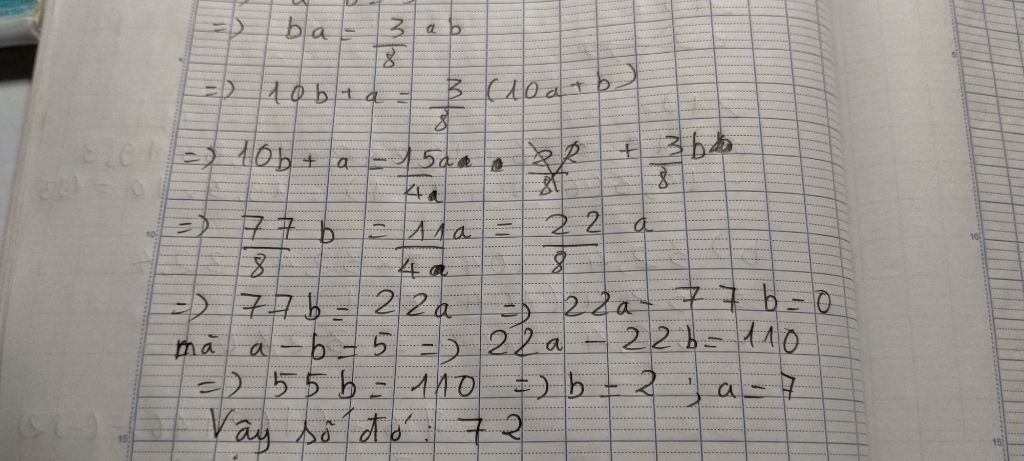 =) ba = 3/8 ab
=) 10b + a = 3/8 (10a + b)
=) 10b + a = 15a/4 + 3/8 b
=) 77/8 b = 11a/4 = 22/8 a
=) 77b = 22a =) 22a - 77b = 0
mà a - b = 5 =) 22a - 22b = 110
=) 55b = 110 =) b = 2 ; a = 7
Vậy số đó : 72